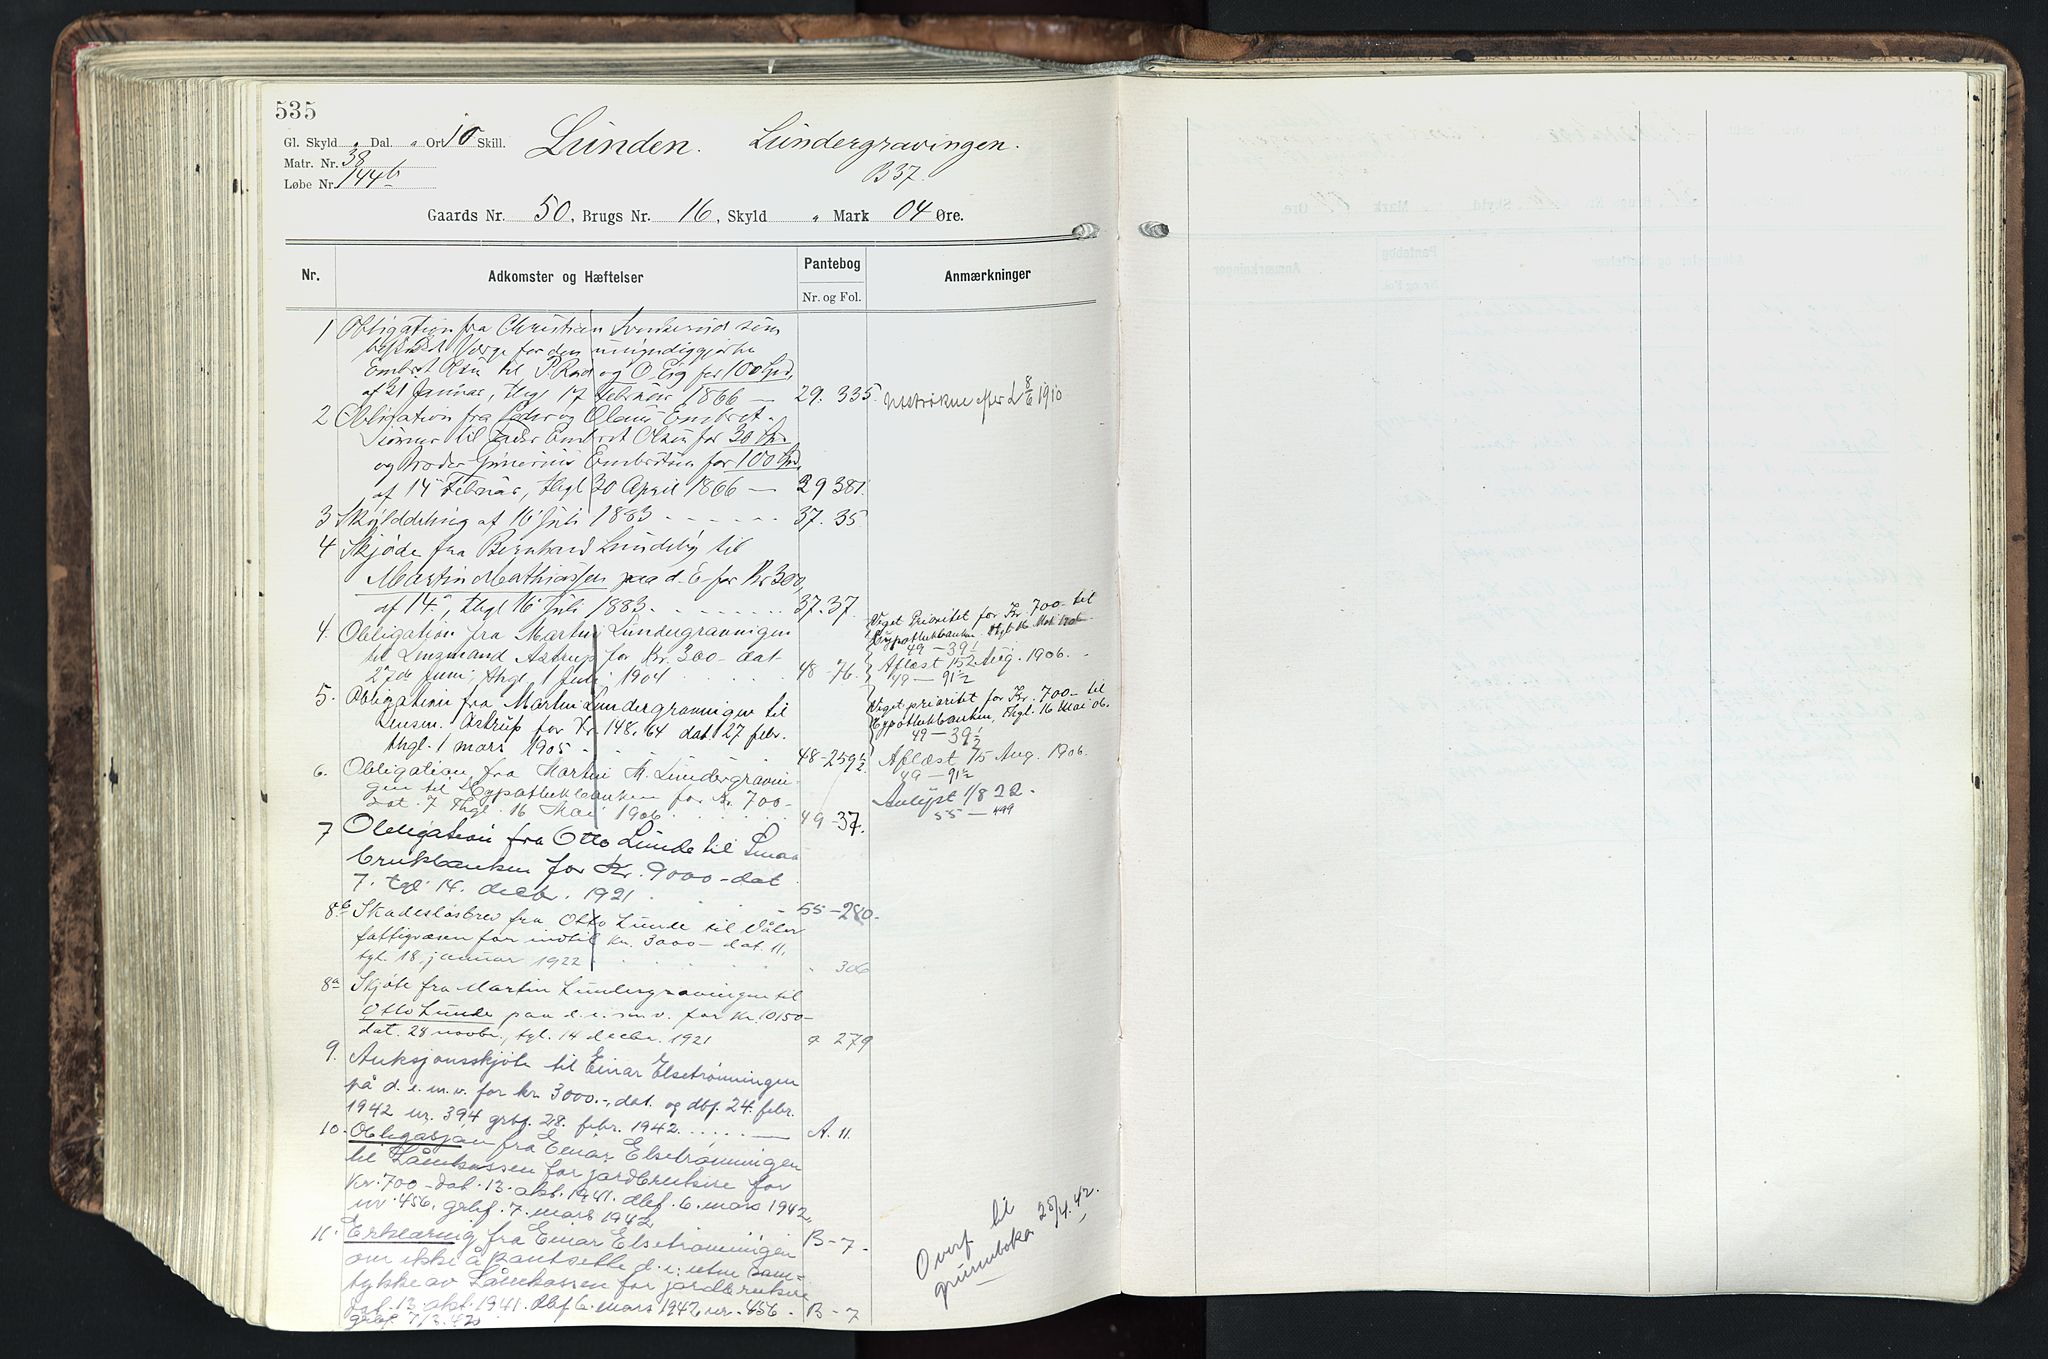 535
Gl. Skyld „ Dal. „ Ort 10 Skill. Lunden. Lundergravingen.
Matr. Nr. 38
Løbe Nr. 144b B37.
Gaards Nr. 50, Brugs Nr. 16, Skyld „ Mark 04 Øre.
Nr. Adkomster og Hæftelser Pantebog Anmærkninger
Nr. og Fol.
1 Obligation fra Christian som
Værge for den umyndiggjorte
Embret Olsen til P. Rud og O. Eig for 100 Spd,
af 31 Januar, thgl 17 Februar 1866 — 29. 335. Udstrøkne efter L 8/6 1910
2 Obligation fra Peder og Olaus Embret-
sønner til Fader Embret Olsen for 30 Spd.
og Broder Gunerius Embretsen for 100 Spd,
af 14 Februar, thgl 30 April 1866 — 29 381.
3 Skylddeling af 16 Juli 1883 - - - - - - 37. 35
4 Skjøde fra Bernhard Lundeby til
Martin Mathiassen paa d. E. for Kr 300,
af 14., thgl 16 Juli 1883. . . . . . . . 37. 37
4. Obligation fra Martin Lundergravingen
til Lensmand Astrup for Kr. 300- dat
27de Juni, thgl. 1 Juli 1904 . . . . . 48-76.
Viget Prioritet for Kr. 700- til
Hypothekbanken. thgl. 16. Mai 1906.
49 — 39½
Aflæst 15 Aug. 1906.
49 — 91½
5. Obligation fra Martin Lundergravningen til
Lensm. Astrup for Kr. 148,64 dat. 27 febr.
thgl. 1 mars 1905 . . . 48-259½
Viget prioritet for Kr. 700- til
Hypothekbanken, Thgl. 16 Mai 06.
49 — 39½
Aflæst 15 Aug. 1906.
49 — 91½
6. Obligation fra Martin M. Lundergravnin-
gen til Hypothekbanken for Kr. 700-
dat. 7 Thgl. 16 Mai 1906 . . . . . . . 49-37.
Avlyst 1/8 22.
55 — 499
7 Obligation fra Otto Lunde til Smaa
brukbanken for Kr. 9000-dat
7. tgl. 14. decbr. 1921 . . . 55-280-
8b Skadesløsbrev fra Otto Lunde til Våler
fattigvæsen for indtil kr. 3000- dat. 11,
tgl. 18. januar 1922 . . . . . „ 306
8a Skjøte fra Martin Lundergravningen til
Otto Lunde paa d. e. m. v. for kr. 10150-
dat. 28 novbr., tgl. 14 decbr. 1921 „ 279
9. Auksjonsskjøte til Einar Elsetrønningen
på d. e. m. v. for kr. 3000.-, dat. og dbf. 24. febr.
1942 nr. 394 grbf. 28. febr. 1942. . . . . — A. 11.
10. Obligasjon fra Einar Elsetrønningen
til Lånekassen for jordbrukere for
Kr. 700 - dat. 13. okt. 1941. dbf. 6. mars 1942,
nr. 456. grbf. 7. mars 1942 B - 7 -
11. Erklæring fra Einar Elsetrønningen
om ikke å pantsette d. e. uten sam-
tykke av Lånekassen for jordbrukere
dat. 13. okt. 1941. dbf. 6. mars 1942 nr. 456 - B - 7
grbf. 7/3.42
Overf. til
grunnboka 25/4.42.